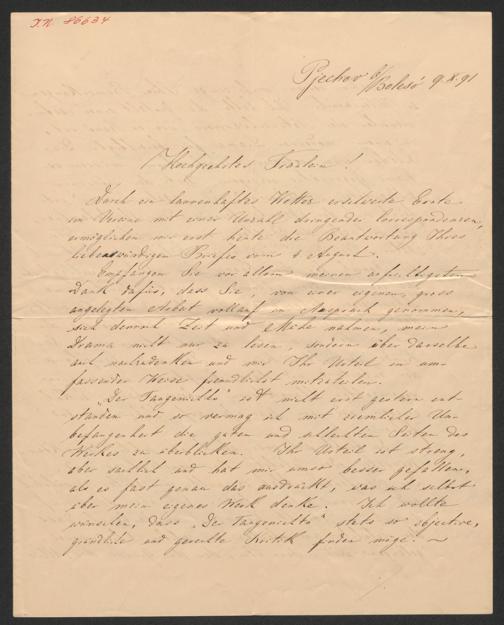 I.N. 86634
Pjechov b/Belcső 9.X.91
Hochgeehrtes Fräulein!
Durch ein launenhaftes Wetter erschwerte Ernte
im Verein mit einer Unzahl dringender Correspondenzen,
ermöglichen mir erst heute die Beantwortung Ihres
liebenswürdigen Briefes vom 4 August.
Empfangen Sie vor allem meinen aufrichtigsten
Dank dafür, dass Sie, von einer eigenen, gross
angelegten Arbeit vollauf in Anspruch genommen,
sich dennoch Zeit und Mühe nahmen, mein
Drama nicht nur zu lesen, sondern über dasselbe
auch nachzudenken und mir Ihr Urteil in um-
fassender Weise freundlichst mitzuteilen.
„Der Taugenichts" ist nicht erst gestern ent-
standen und so vermag ich mit ziemlicher Un-
befangenheit die guten und schlechten Seiten des
Werkes zu überblicken. Ihr Urteil ist streng,
aber sachlich und hat mir umso besser gefallen,
als es fast genau das ausdrückt, was ich selbst
über mein eigenes Werk denke. Ich wollte
wünschen, dass „Der Taugenichts" stets so objective,
gründliche und gerechte Kritik finden möge. ~